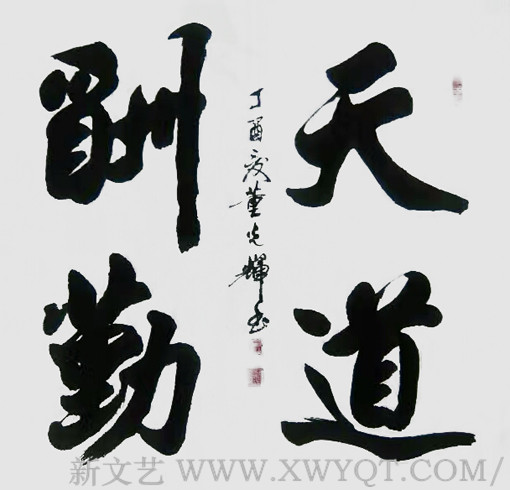 天道
酬勤
丁酉夏董光辉书
新文艺 WWW.XWYQT.COM/